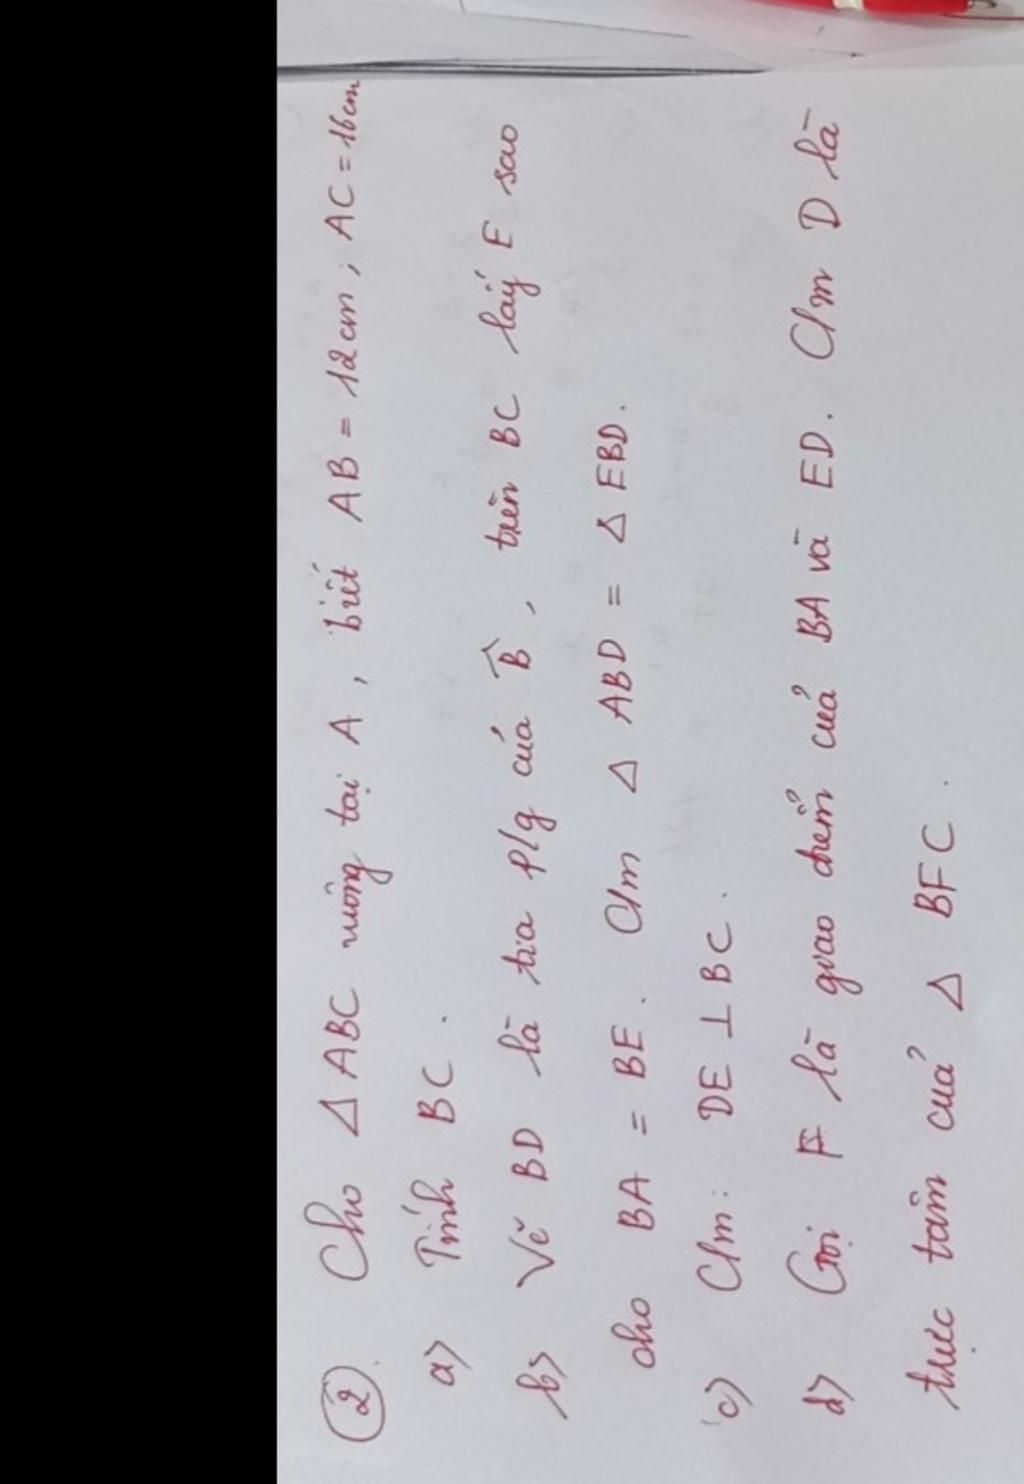 2. Cho Δ ABC vuông tại A, biết AB = 12cm; AC = 16cm
a) Tính BC.
b) Vẽ BD là tia p/g của B̂, trên BC lấy E sao
cho BA = BE. C/m Δ ABD = Δ EBD.
c) C/m: DE ⊥ BC.
d) Gọi F là giao điểm của BA và ED. C/m D là
trực tâm của Δ BFC.